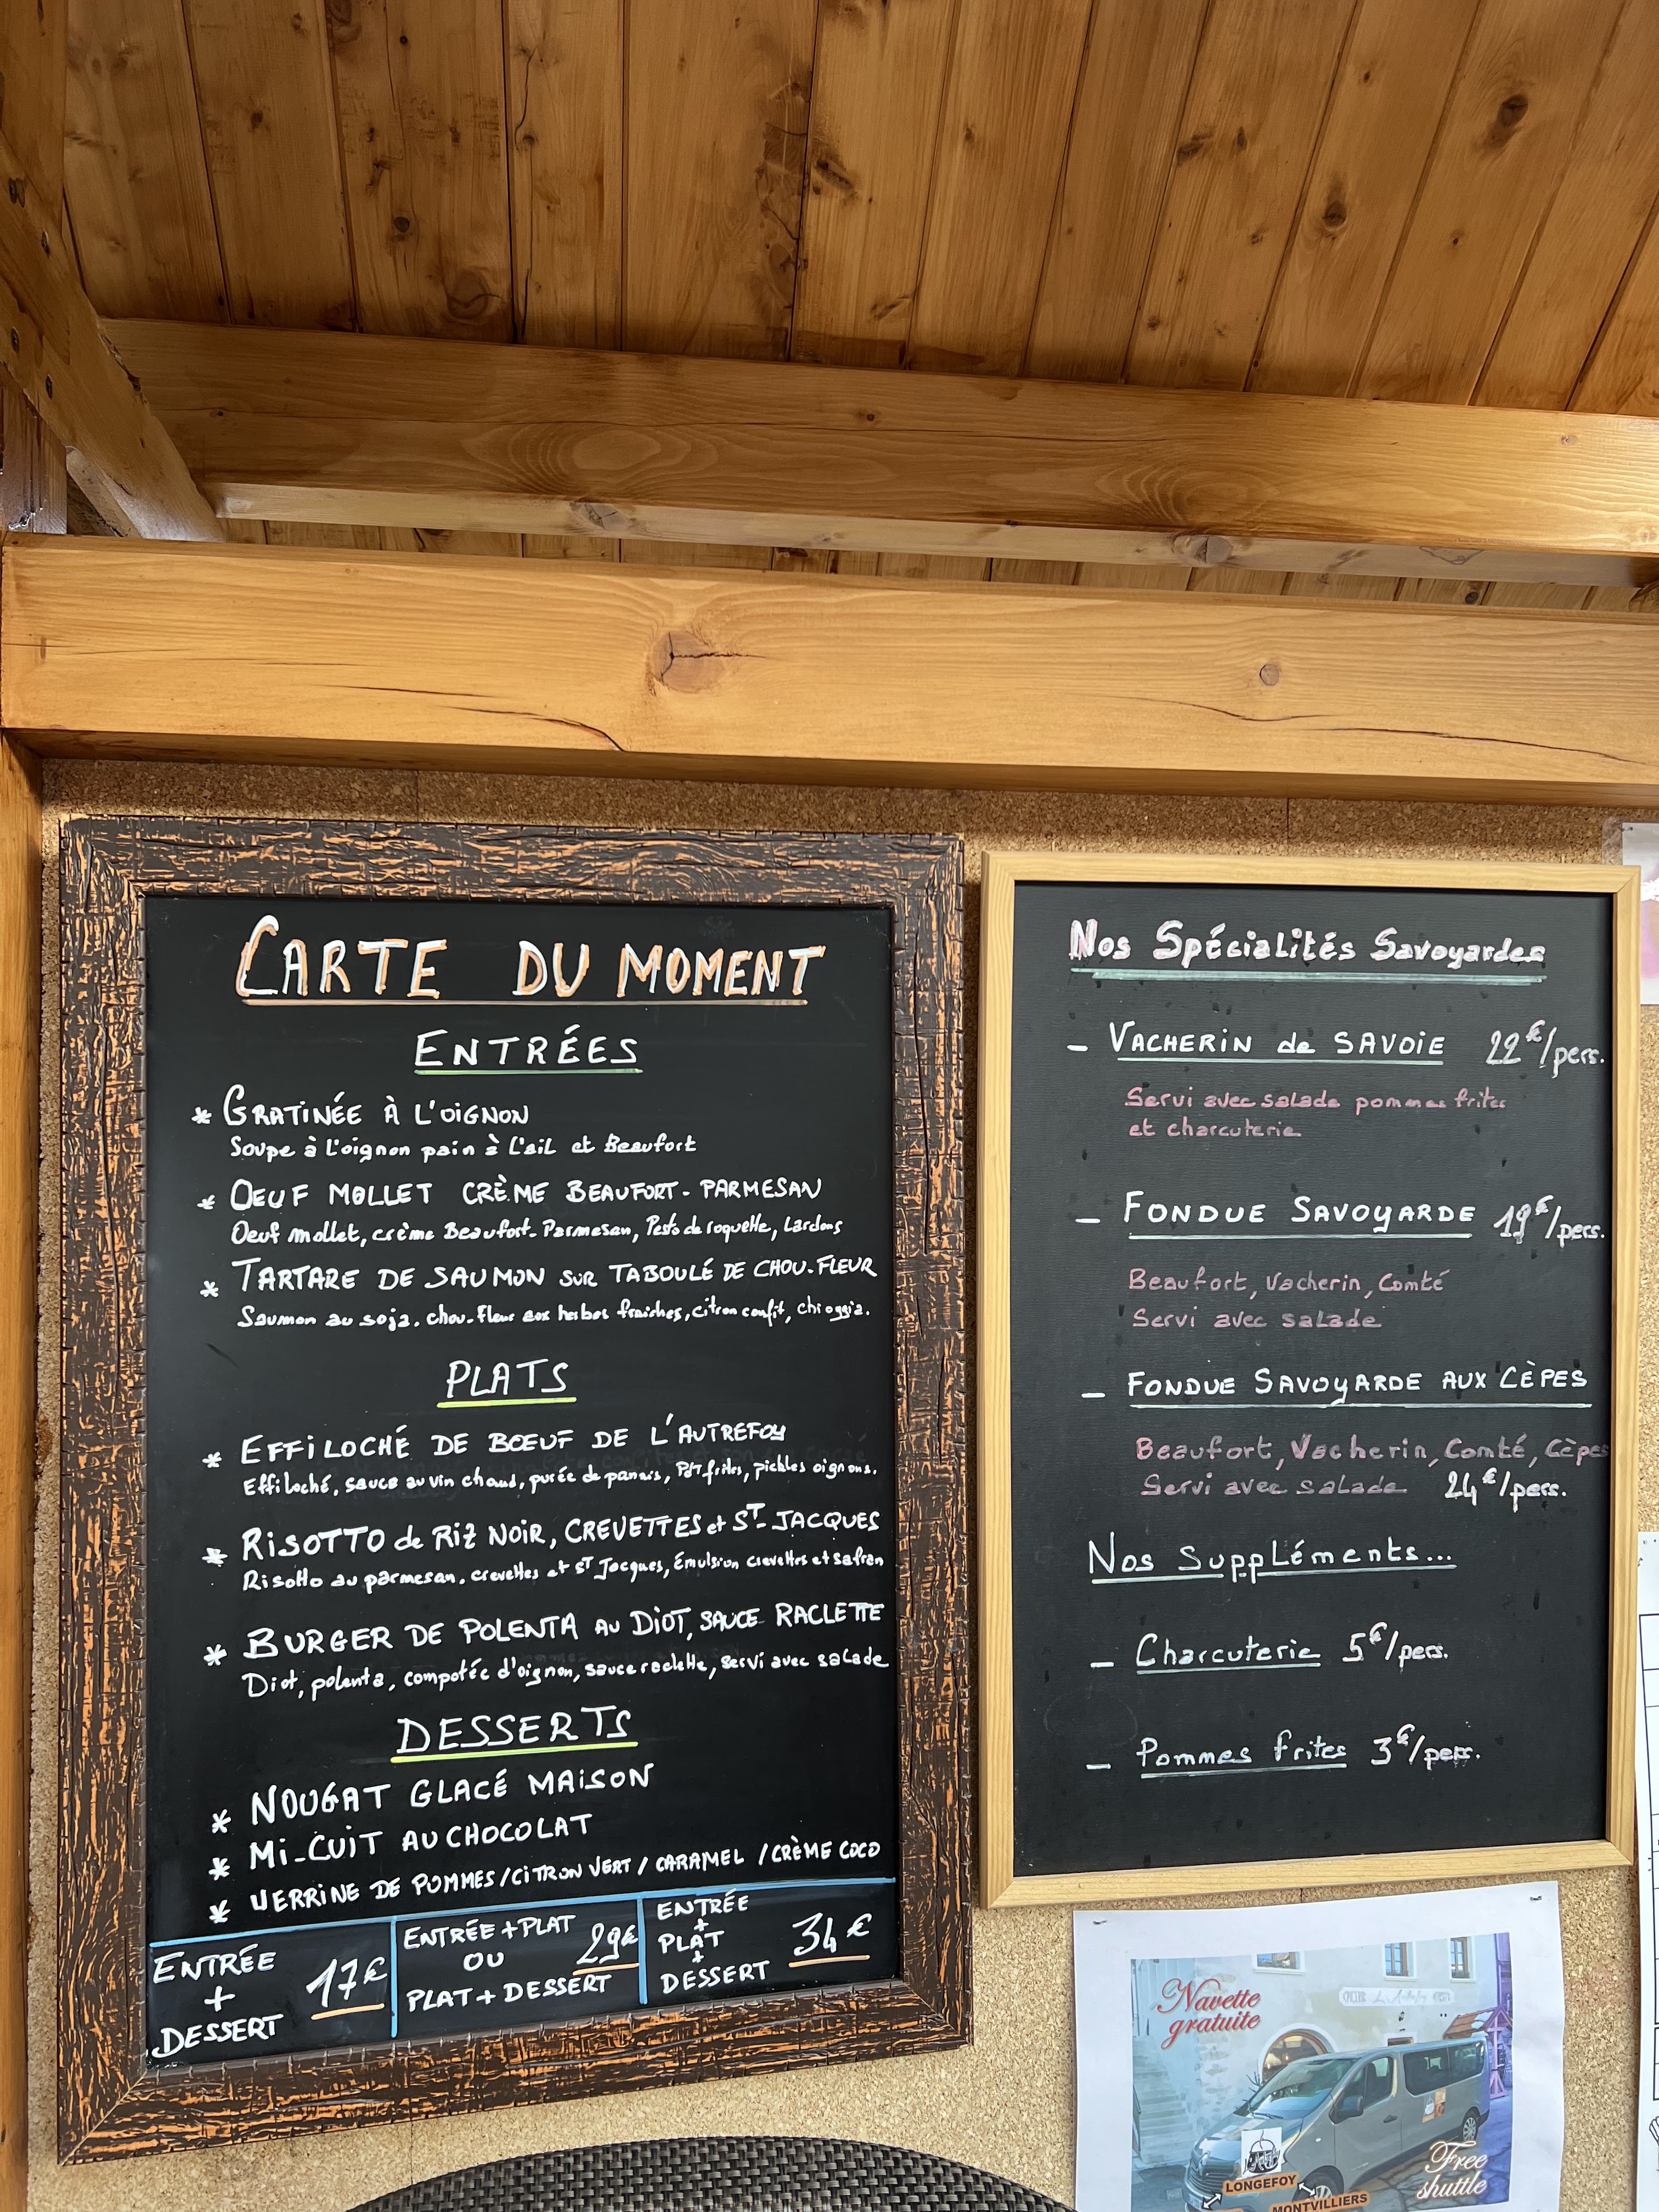 CARTE DU MOMENT
ENTRÉES
* GRATINÉE À L'OIGNON
Soupe à L'oignon pain à L'ail et Beaufort
* OEUF MOLLET CRÈME BEAUFORT-PARMESAN
Oeuf mollet, crème Beaufort-Parmesan, Pesto de roquette, Lardons
* TARTARE DE SAUMON SUR TABOULÉ DE CHOU-FLEUR
Saumon au soja, chou-fleur aux herbes fraiches, citron confit, chioggia.
PLATS
* EFFILOCHÉ DE BŒUF DE L'AUTREFOY
Effiloché, sauce au vin chaud, purée de panais, PDT frites, pickles oignons.
* RISOTTO de RIZ NOIR, CREVETTES et ST-JACQUES
Risotto au parmesan, crevettes et ST Jacques, Émulsion crevettes et safran
* BURGER DE POLENTA AU DIOT, SAUCE RACLETTE
Diot, polenta, compotée d'oignon, sauce raclette, servi avec salade
DESSERTS
* NOUGAT GLACÉ MAISON
* MI-CUIT AU CHOCOLAT
* VERRINE DE POMMES/CITRON VERT/CARAMEL/CRÈME COCO
ENTRÉE
+
DESSERT
17€
ENTRÉE+PLAT
OU
PLAT+DESSERT
29€
ENTRÉE
+
PLAT
+
DESSERT
34€
Nos Spécialités Savoyardes
- VACHERIN de SAVOIE 22€/pers.
Servi avec salade pommes frites
et charcuterie
- FONDUE SAVOYARDE 19€/pers.
Beaufort, Vacherin, Comté
Servi avec salade
- FONDUE SAVOYARDE AUX CÈPES
Beaufort, Vacherin, Comté, Cèpes
Servi avec salade 24€/pers.
Nos Suppléments...
- Charcuterie 5€/pers.
- Pommes frites 3€/pers.
Navette
gratuite
Free
shuttle
LONGEFOY
MONTVILLIERS